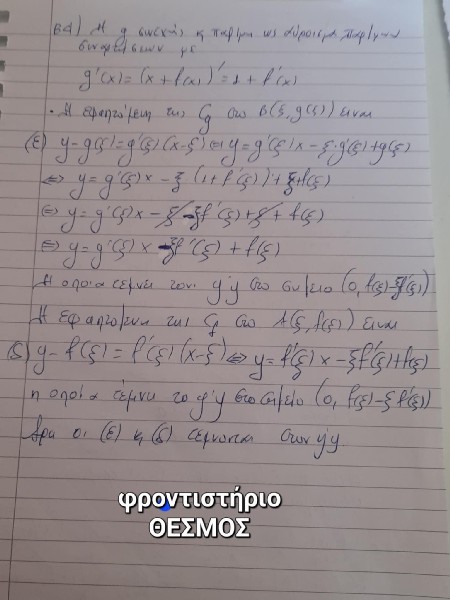 B4) Η g συνεχής κ παρ/μη ως άθροισμα παρ/μων
συναρτήσεων με
g'(x) = (x + f(x))' = 1 + f'(x)
· Η εφαπτόμενη της Cg στο B(ξ, g(ξ)) είναι
(ε) y - g(ξ) = g'(ξ) (x-ξ) ⇔ y = g'(ξ) x - ξ·g'(ξ) + g(ξ)
⇔ y = g'(ξ) x - ξ (1 + f'(ξ)) + ξ + f(ξ)
⇔ y = g'(ξ) x - ξ - ξf'(ξ) + ξ + f(ξ)
⇔ y = g'(ξ) x - ξf'(ξ) + f(ξ)
Η οποία τέμνει τον y'y στο σημείο (0, f(ξ) - ξf'(ξ))
Η εφαπτόμενη της Cf στο A(ξ, f(ξ)) είναι
y - f(ξ) = f'(ξ) (x-ξ) ⇔ y = f'(ξ) x - ξf'(ξ) + f(ξ)
η οποία τέμνει το y'y στο σημείο (0, f(ξ) - ξf'(ξ))
Άρα οι (ε) κ (δ) τέμνονται στον y'y
φροντιστήριο
ΘΕΣΜΟΣ